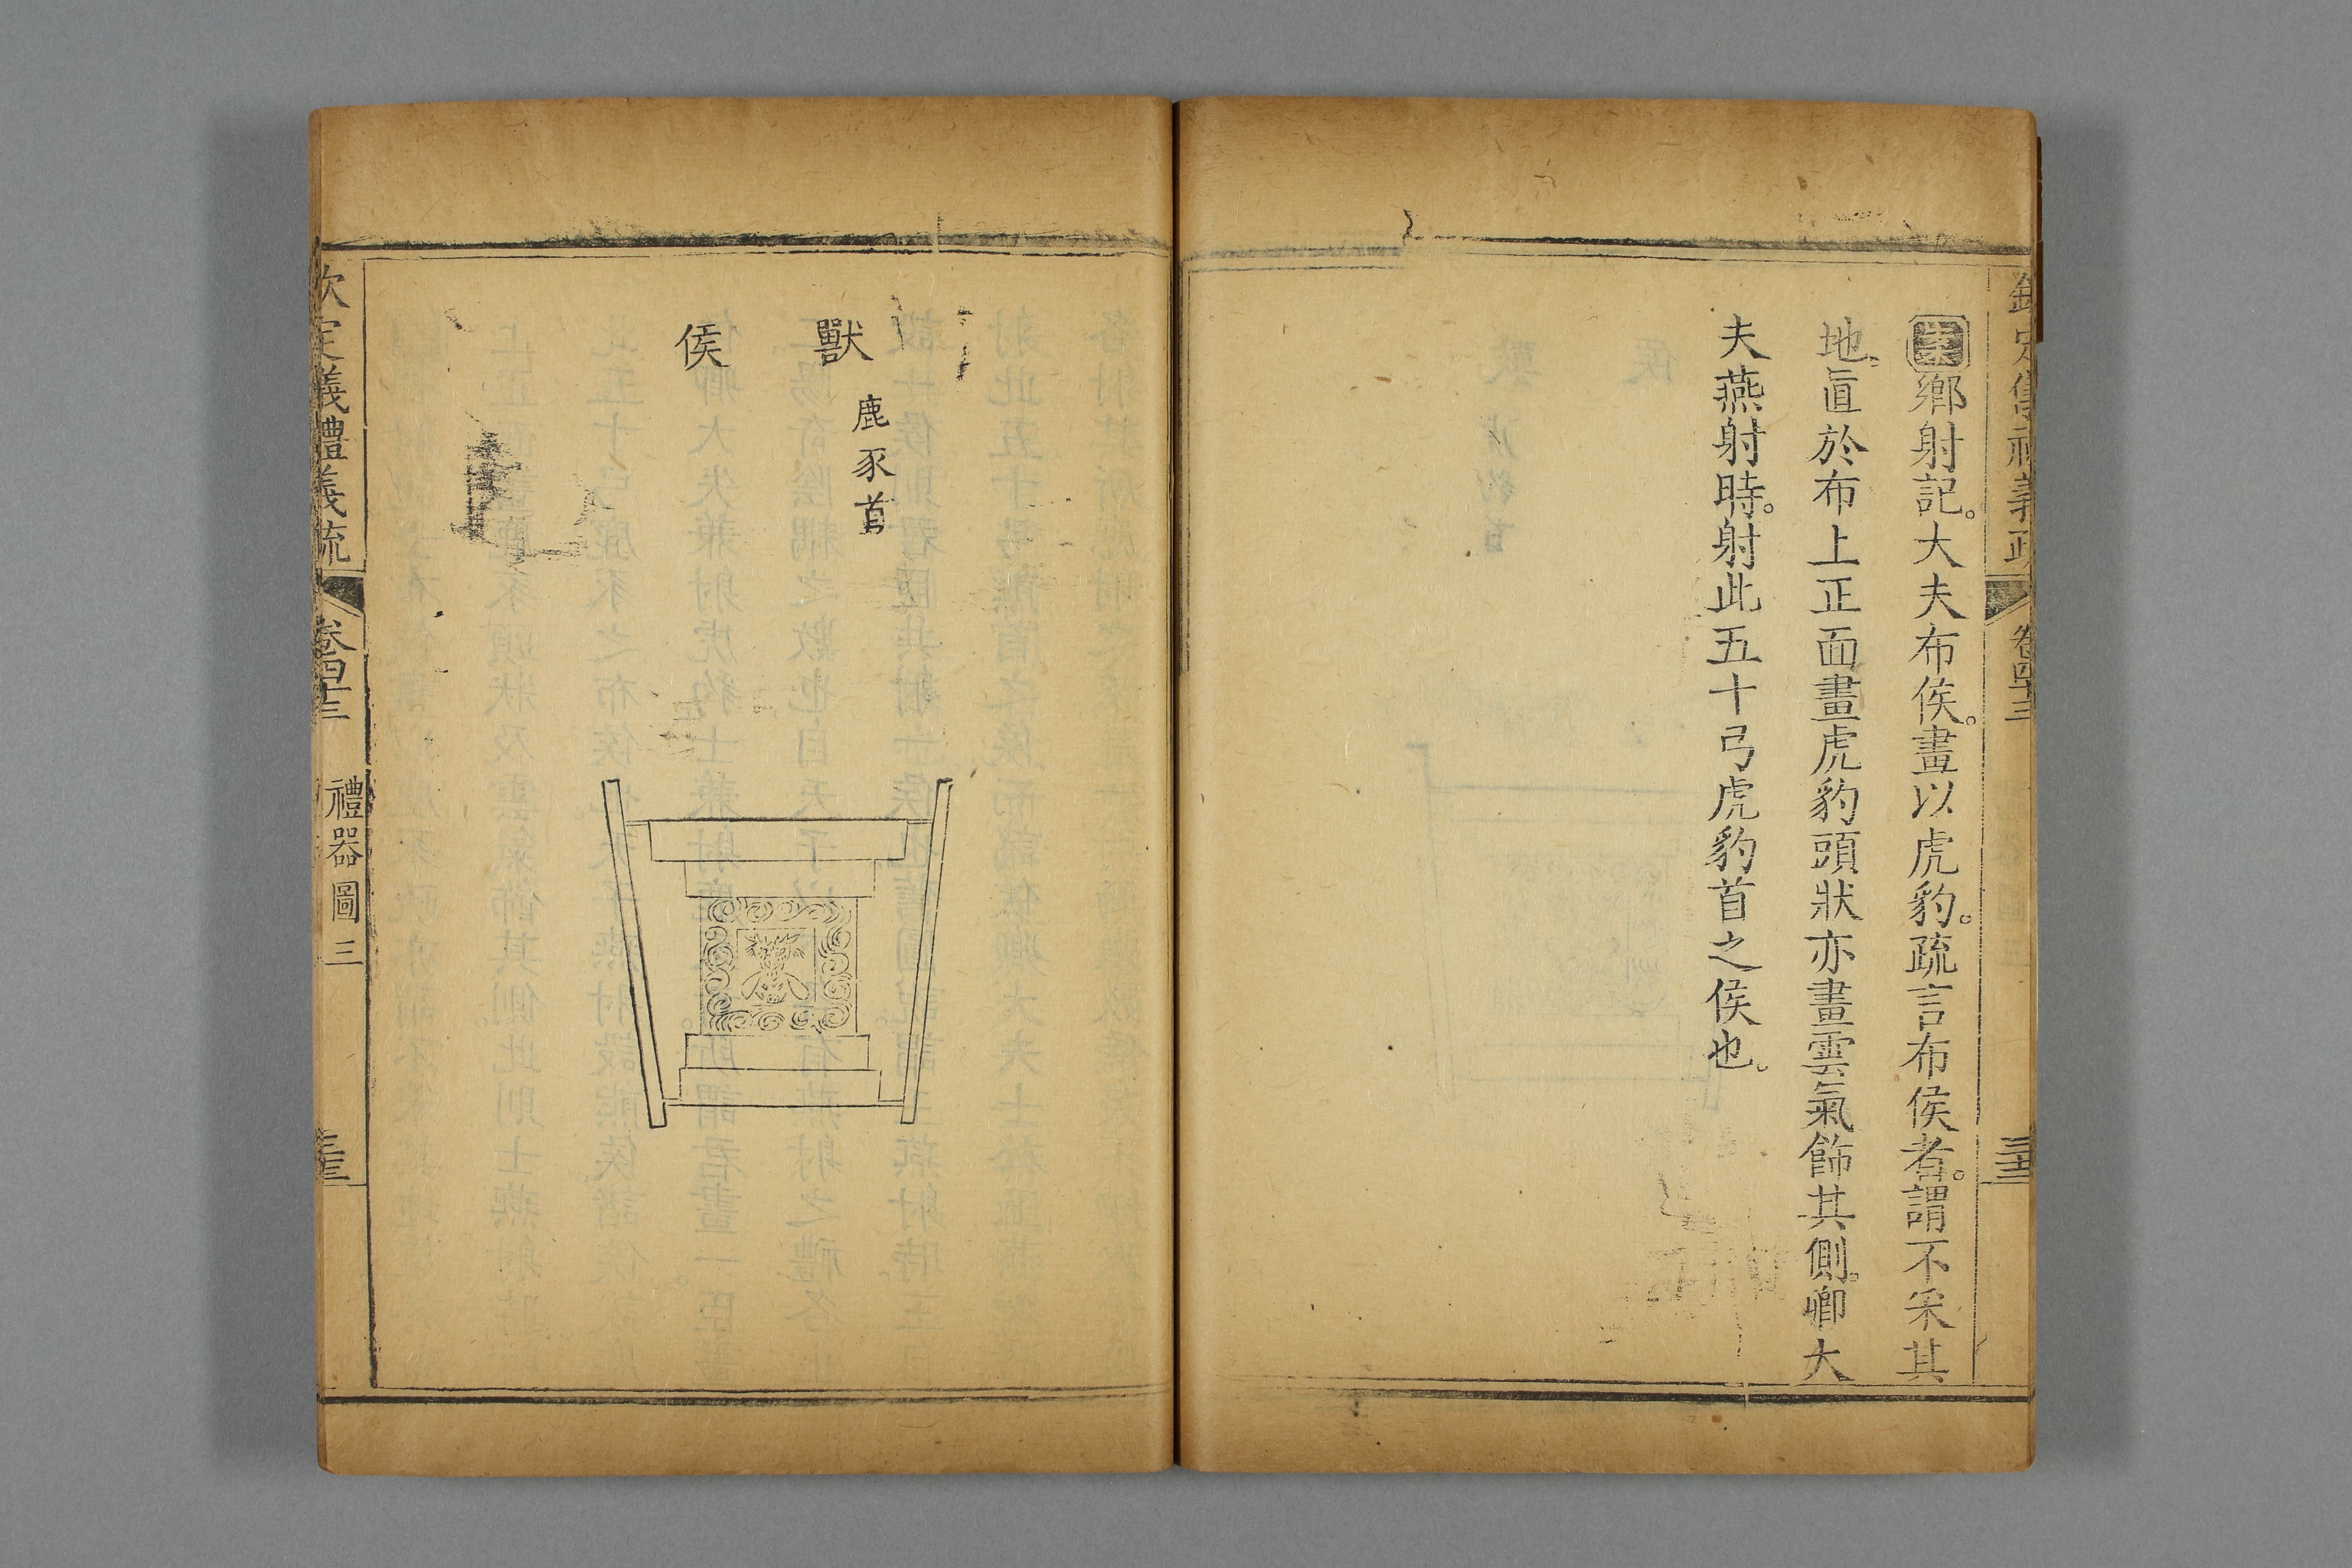 鄉射記。大夫布侯。畫以虎豹。疏言布侯者。謂不采其
地。直於布上正面畫虎豹頭狀亦畫雲氣飾其側。卿大
夫燕射時。射此五十弓虎豹首之侯也。
獸
鹿豕首
侯
欽定儀禮義疏
卷四十三
禮器圖三